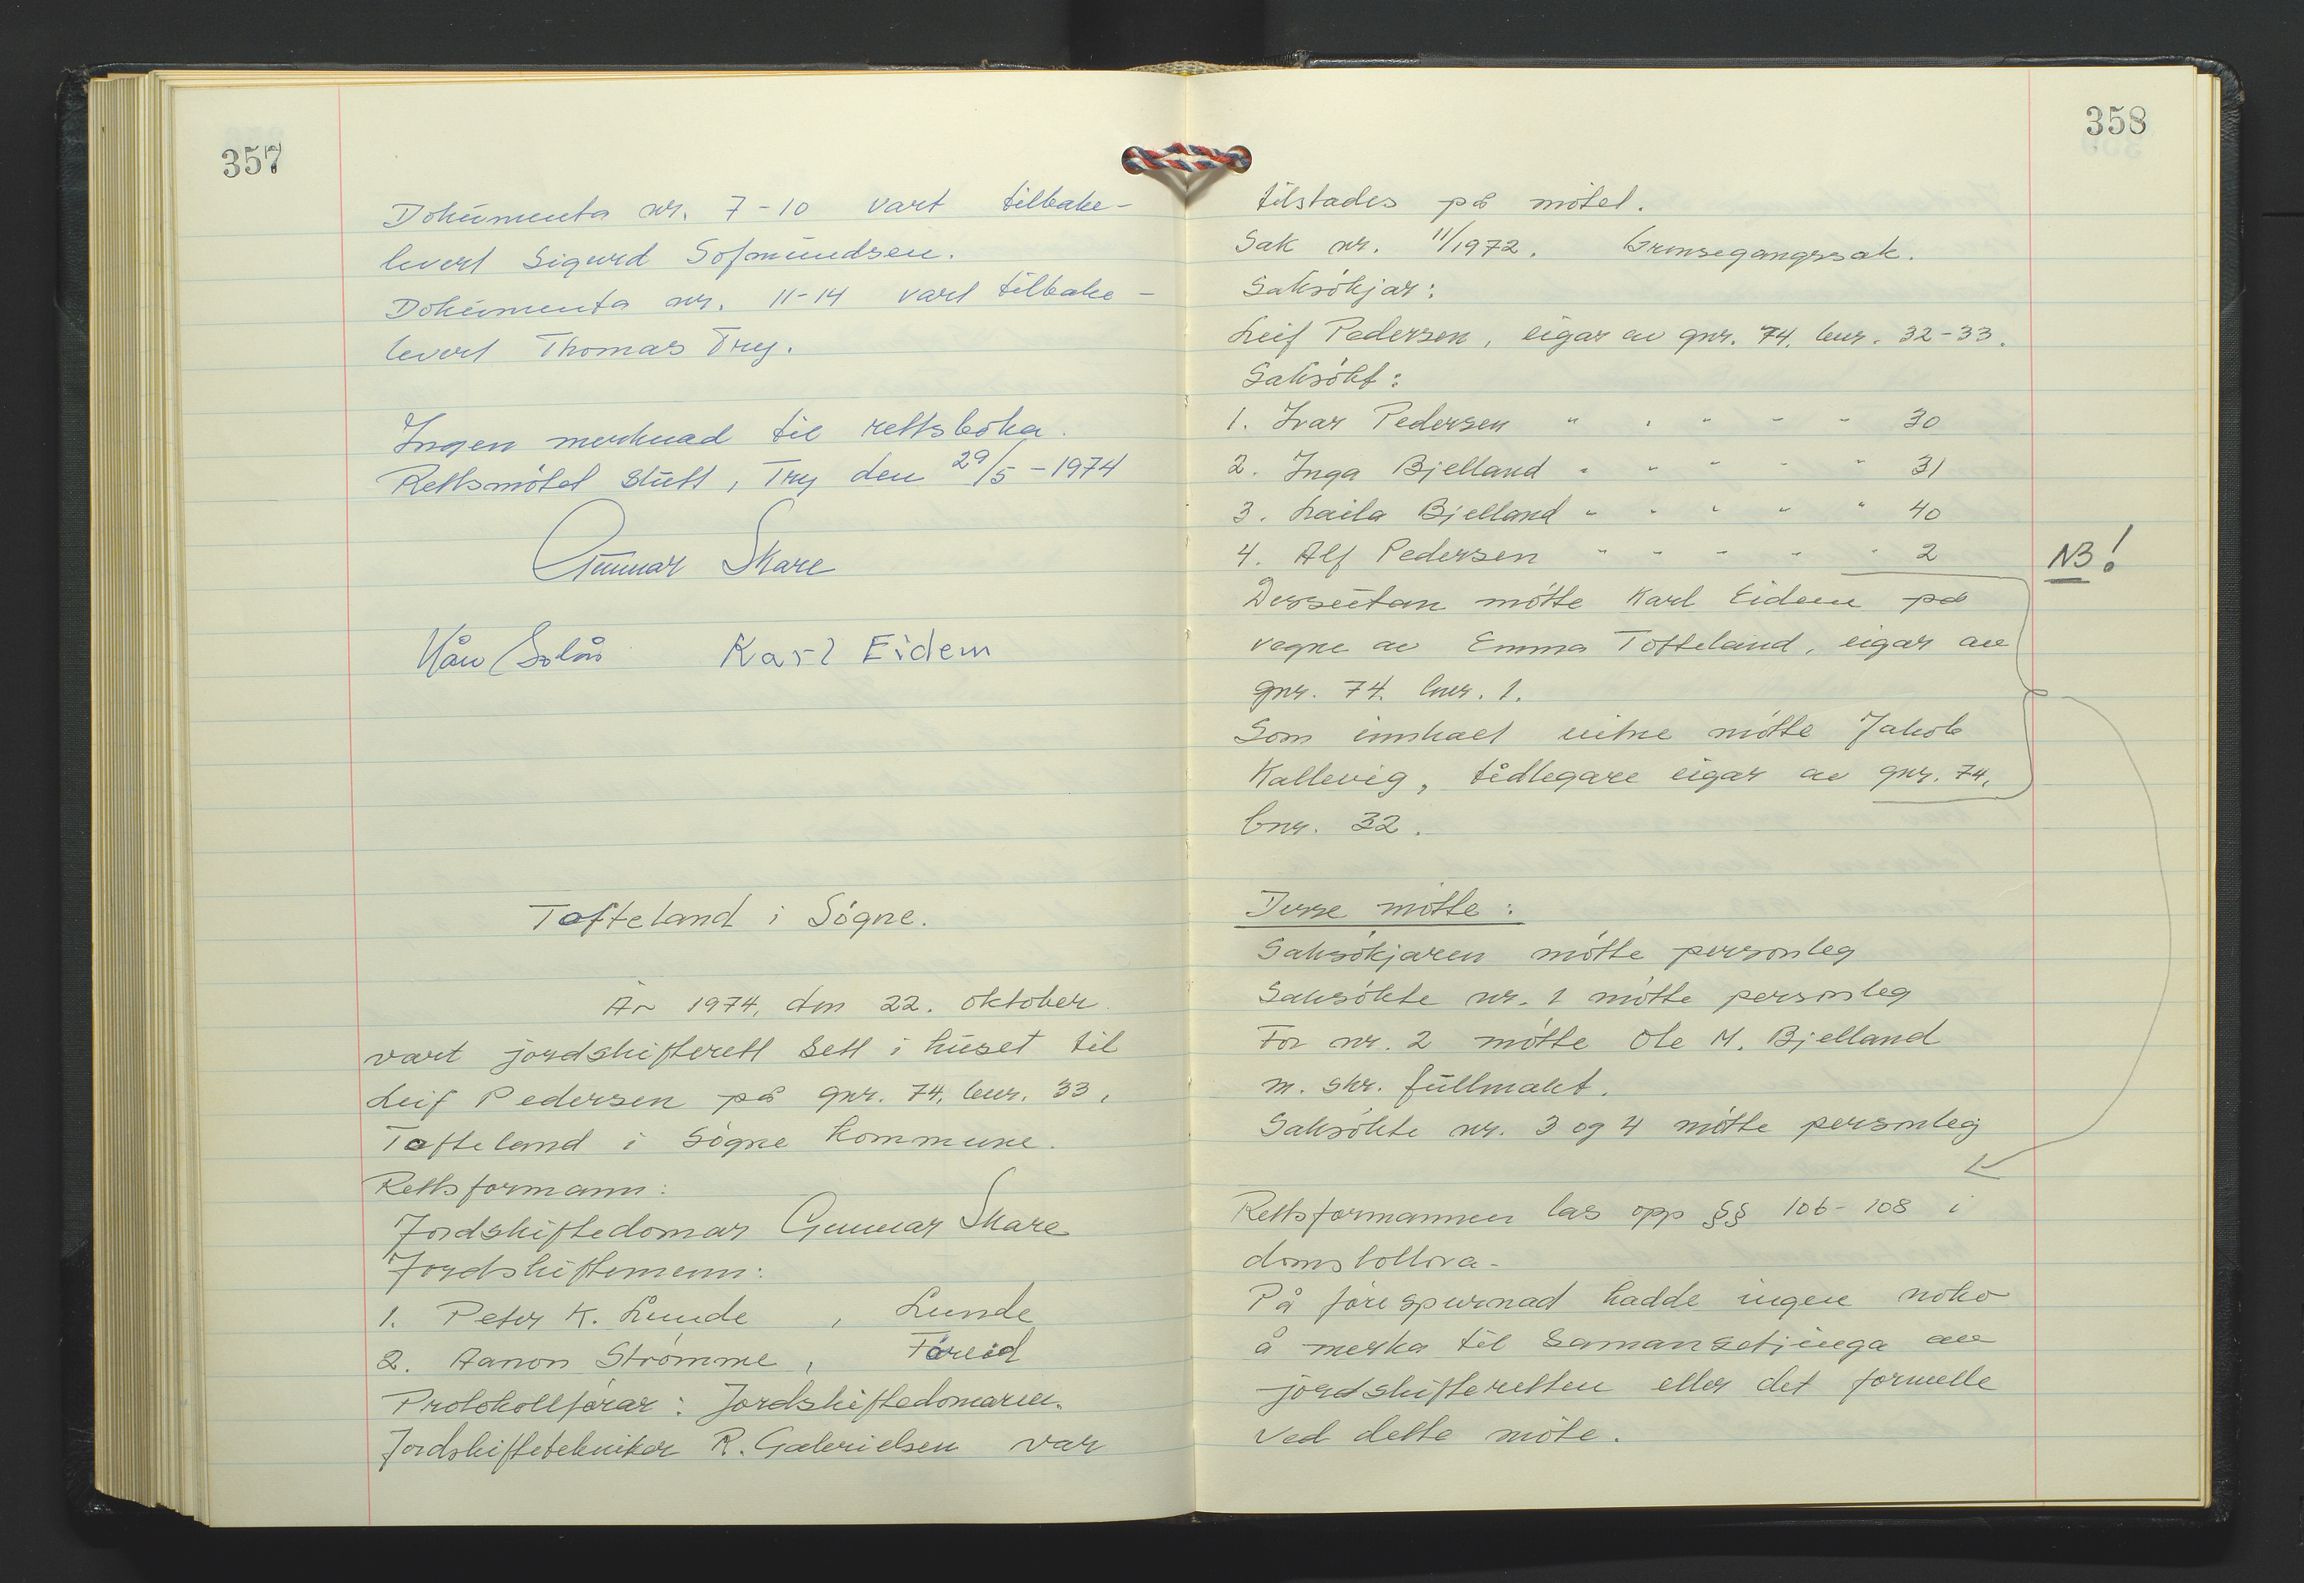 357
Dokumenta nr. 7-10 vart tilbake-
levert Sigurd Sofmundsen.
Dokumenta nr. 11-14 vart tilbake-
levert Thomas Try.
Ingen merknad til rettsboka.
Rettsmötet slutt, Try den 29/5-1974
Gunnar Skare
Karl Eidem
Tofteland i Sögne.
År 1974, den 22. oktober
vart jordskifterett sett i huset til
Leif Pedersen på gnr. 74, bnr. 33,
Tofteland i Sögne kommune.
Rettsformann:
Jordskiftedomar Gunnar Skare
Jordskiftemenn:
1. Peter K. Lunde, Lunde
2. Aanon Strömme, Föreid
Protokollförar: Jordskiftedomaren.
Jordskiftetekniker R. Gabrielsen var
358
tilstades på mötet.
Sak nr. 11/1972. Grensegangssak.
Saksökjar:
Leif Pedersen, eigar av gnr. 74, bnr. 32-33.
Saksökt:
1. Ivar Pedersen " " " " " 30
2. Inga Bjelland " " " " " 31
3. Laila Bjelland " " " " " 40
4. Alf Pedersen " " " " " 2
NB!
Dessutan mötte Karl Eidem på
vegne av Emma Tofteland, eigar av
gnr. 74, bnr. 1.
Som innkalt vitne mötte Jakob
Kallevig, tidlegare eigar av gnr. 74,
bnr. 32.
Desse mötte:
Saksökjaren mötte personleg
Saksökte nr. 1 mötte personleg
For nr. 2 mötte Ole M. Bjelland
m. skr. fullmakt.
Saksökte nr. 3 og 4 mötte personleg
Rettsformannen las opp §§ 106-108 i
domstollova.
På förespurnad hadde ingen noko
å merka til samansetjinga av
jordskifteretten eller det formelle
ved dette möte.